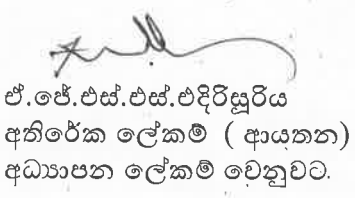 ඒ.ජේ.එස්.එස්.එදිරිසූරිය
අතිරේක ලේකම් ( ආයතන)
අධ්‍යාපන ලේකම් වෙනුවට.